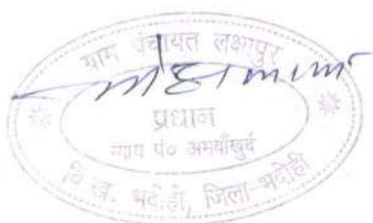 ग्राम पंचायत लक्षापुर
प्रधान
न्याय पं० अमवाँखुर्द
वि.ख. भदोही, जिला-भदोही